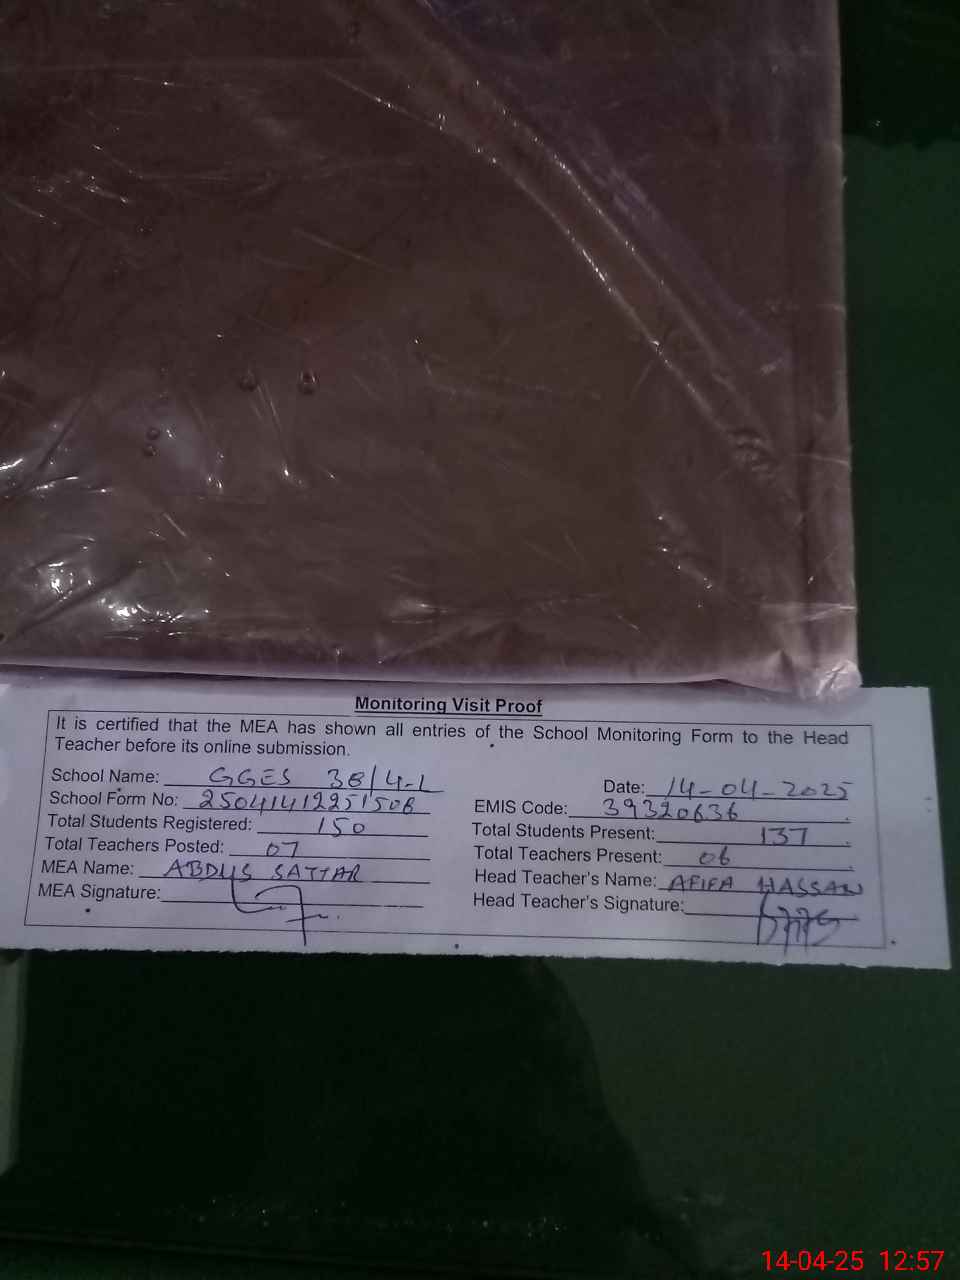 Monitoring Visit Proof
It is certified that the MEA has shown all entries of the School Monitoring Form to the Head
Teacher before its online submission.
School Name: GGES 38/4-L Date: 14-04-2025
School Form No: 25041412251508 EMIS Code: 39320636
Total Students Registered: 150 Total Students Present: 137
Total Teachers Posted: 07 Total Teachers Present: 06
MEA Name: ABDUS SATTAR Head Teacher's Name: AFIFA HASSAN
MEA Signature: Head Teacher's Signature:
14-04-25 12:57